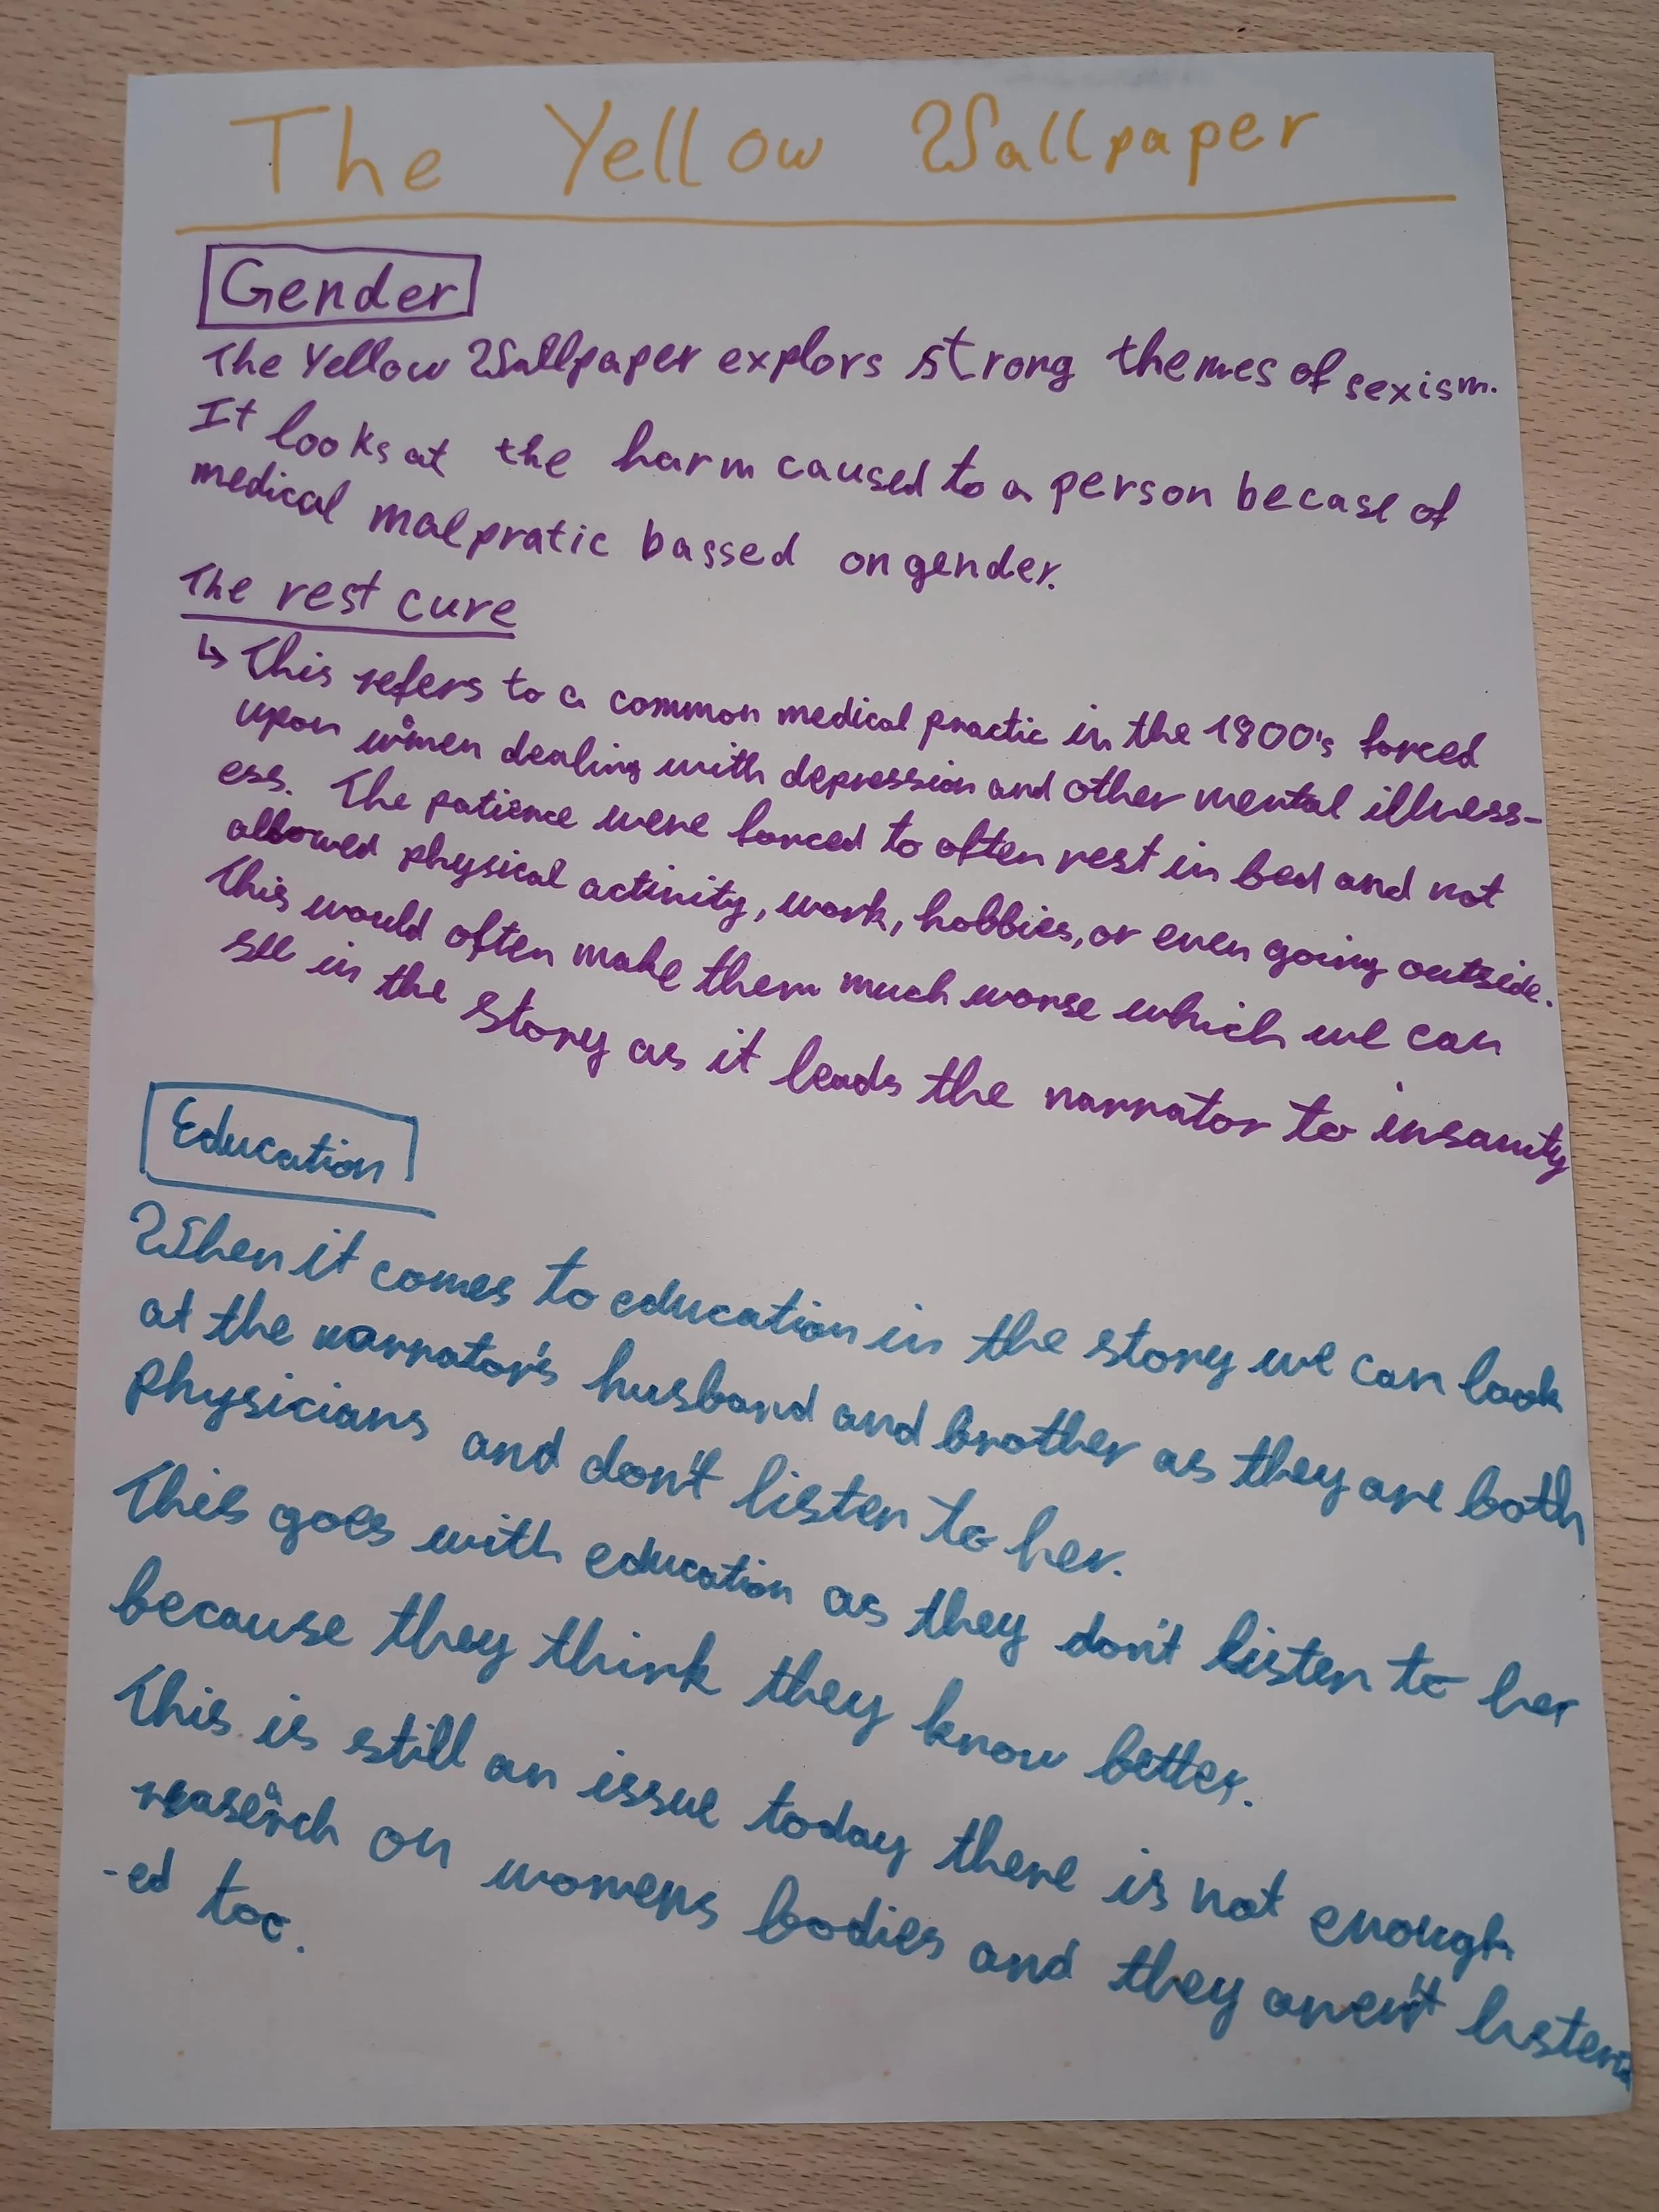 The Yellow Wallpaper
Gender
The Yellow Wallpaper explors strong themes of sexism.
It looks at the harm caused to a person becase of
medical malpratic bassed on gender.
The rest cure
↳ This refers to a common medical practic in the 1800's forced
upon women dealing with depression and other mental illness-
ess. The patience were forced to often rest in bed and not
allowed physical activity, work, hobbies, or even going outside.
This would often make them much worse which we can
see in the story as it leads the narrator to insanity
Education
When it comes to education in the story we can look
at the narrator's husband and brother as they are both
physicians and don't listen to her.
This goes with education as they don't listen to her
because they think they know better.
This is still an issue today there is not enough
research on womens bodies and they aren't listen
-ed too.